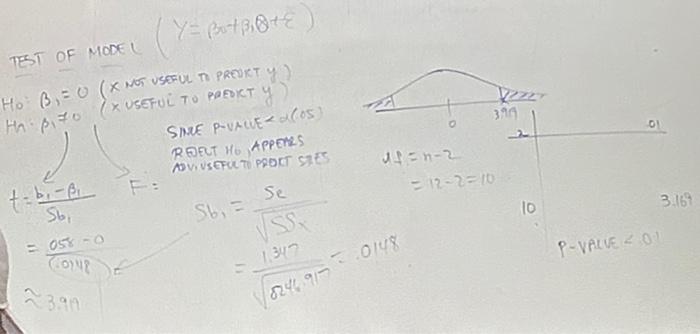 TEST OF MODEL (Y = β0+β1X+ε)
H0: β1 = 0 (X NOT USEFUL TO PREDICT y)
HA: β1 ≠ 0 (X USEFUL TO PREDICT y)
SINCE P-VALUE < α(.05)
REJECT H0, APPEARS
ADV. USEFUL TO PREDICT SALES
t = b1 - β1 / Sb1
F:
= .058 - 0 / (.0148)
≈ 3.919
Sb1 = Se / √SSx
= 1.347 / √8246.917 = .0148
0
3.919
df = n-2
= 12-2=10
2
.01
10
3.169
P-VALUE < .01